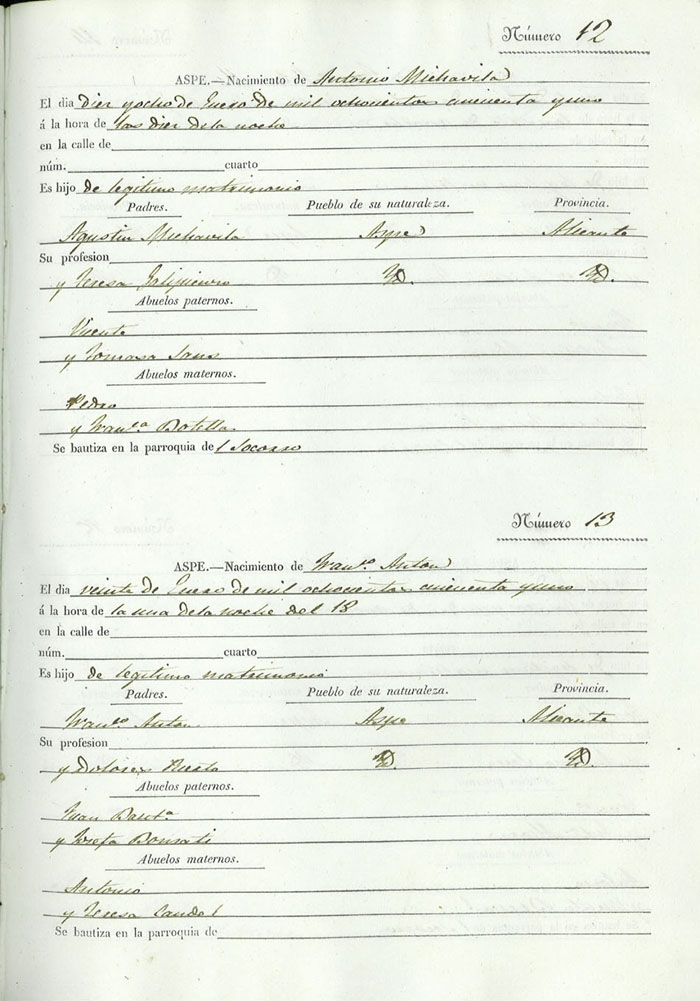 Número 12
ASPE.—Nacimiento de Antonio Michavila
El dia Diez y ocho de Enero de mil ochocientos cincuenta y uno
á la hora de las diez de la noche
en la calle de
núm. cuarto
Es hijo de legitimo matrimonio
Padres. Pueblo de su naturaleza. Provincia.
Agustin Michavila Aspe Alicante
Su profesion
y Teresa Yd. Yd.
Abuelos paternos.
Vicente
y Tomasa Sans
Abuelos maternos.
Pedro
y Franca Botella
Se bautiza en la parroquia del Socorro
Número 13
ASPE.—Nacimiento de Franco Anton
El dia veinte de Enero de mil ochocientos cincuenta y uno
á la hora de la una de la noche del 18
en la calle de
núm. cuarto
Es hijo de legitimo matrimonio
Padres. Pueblo de su naturaleza. Provincia.
Franco Anton Aspe Alicante
Su profesion
y Dolores Yd. Yd.
Abuelos paternos.
Juan Bauta
y Josefa
Abuelos maternos.
Antonio
y Teresa Candel
Se bautiza en la parroquia de